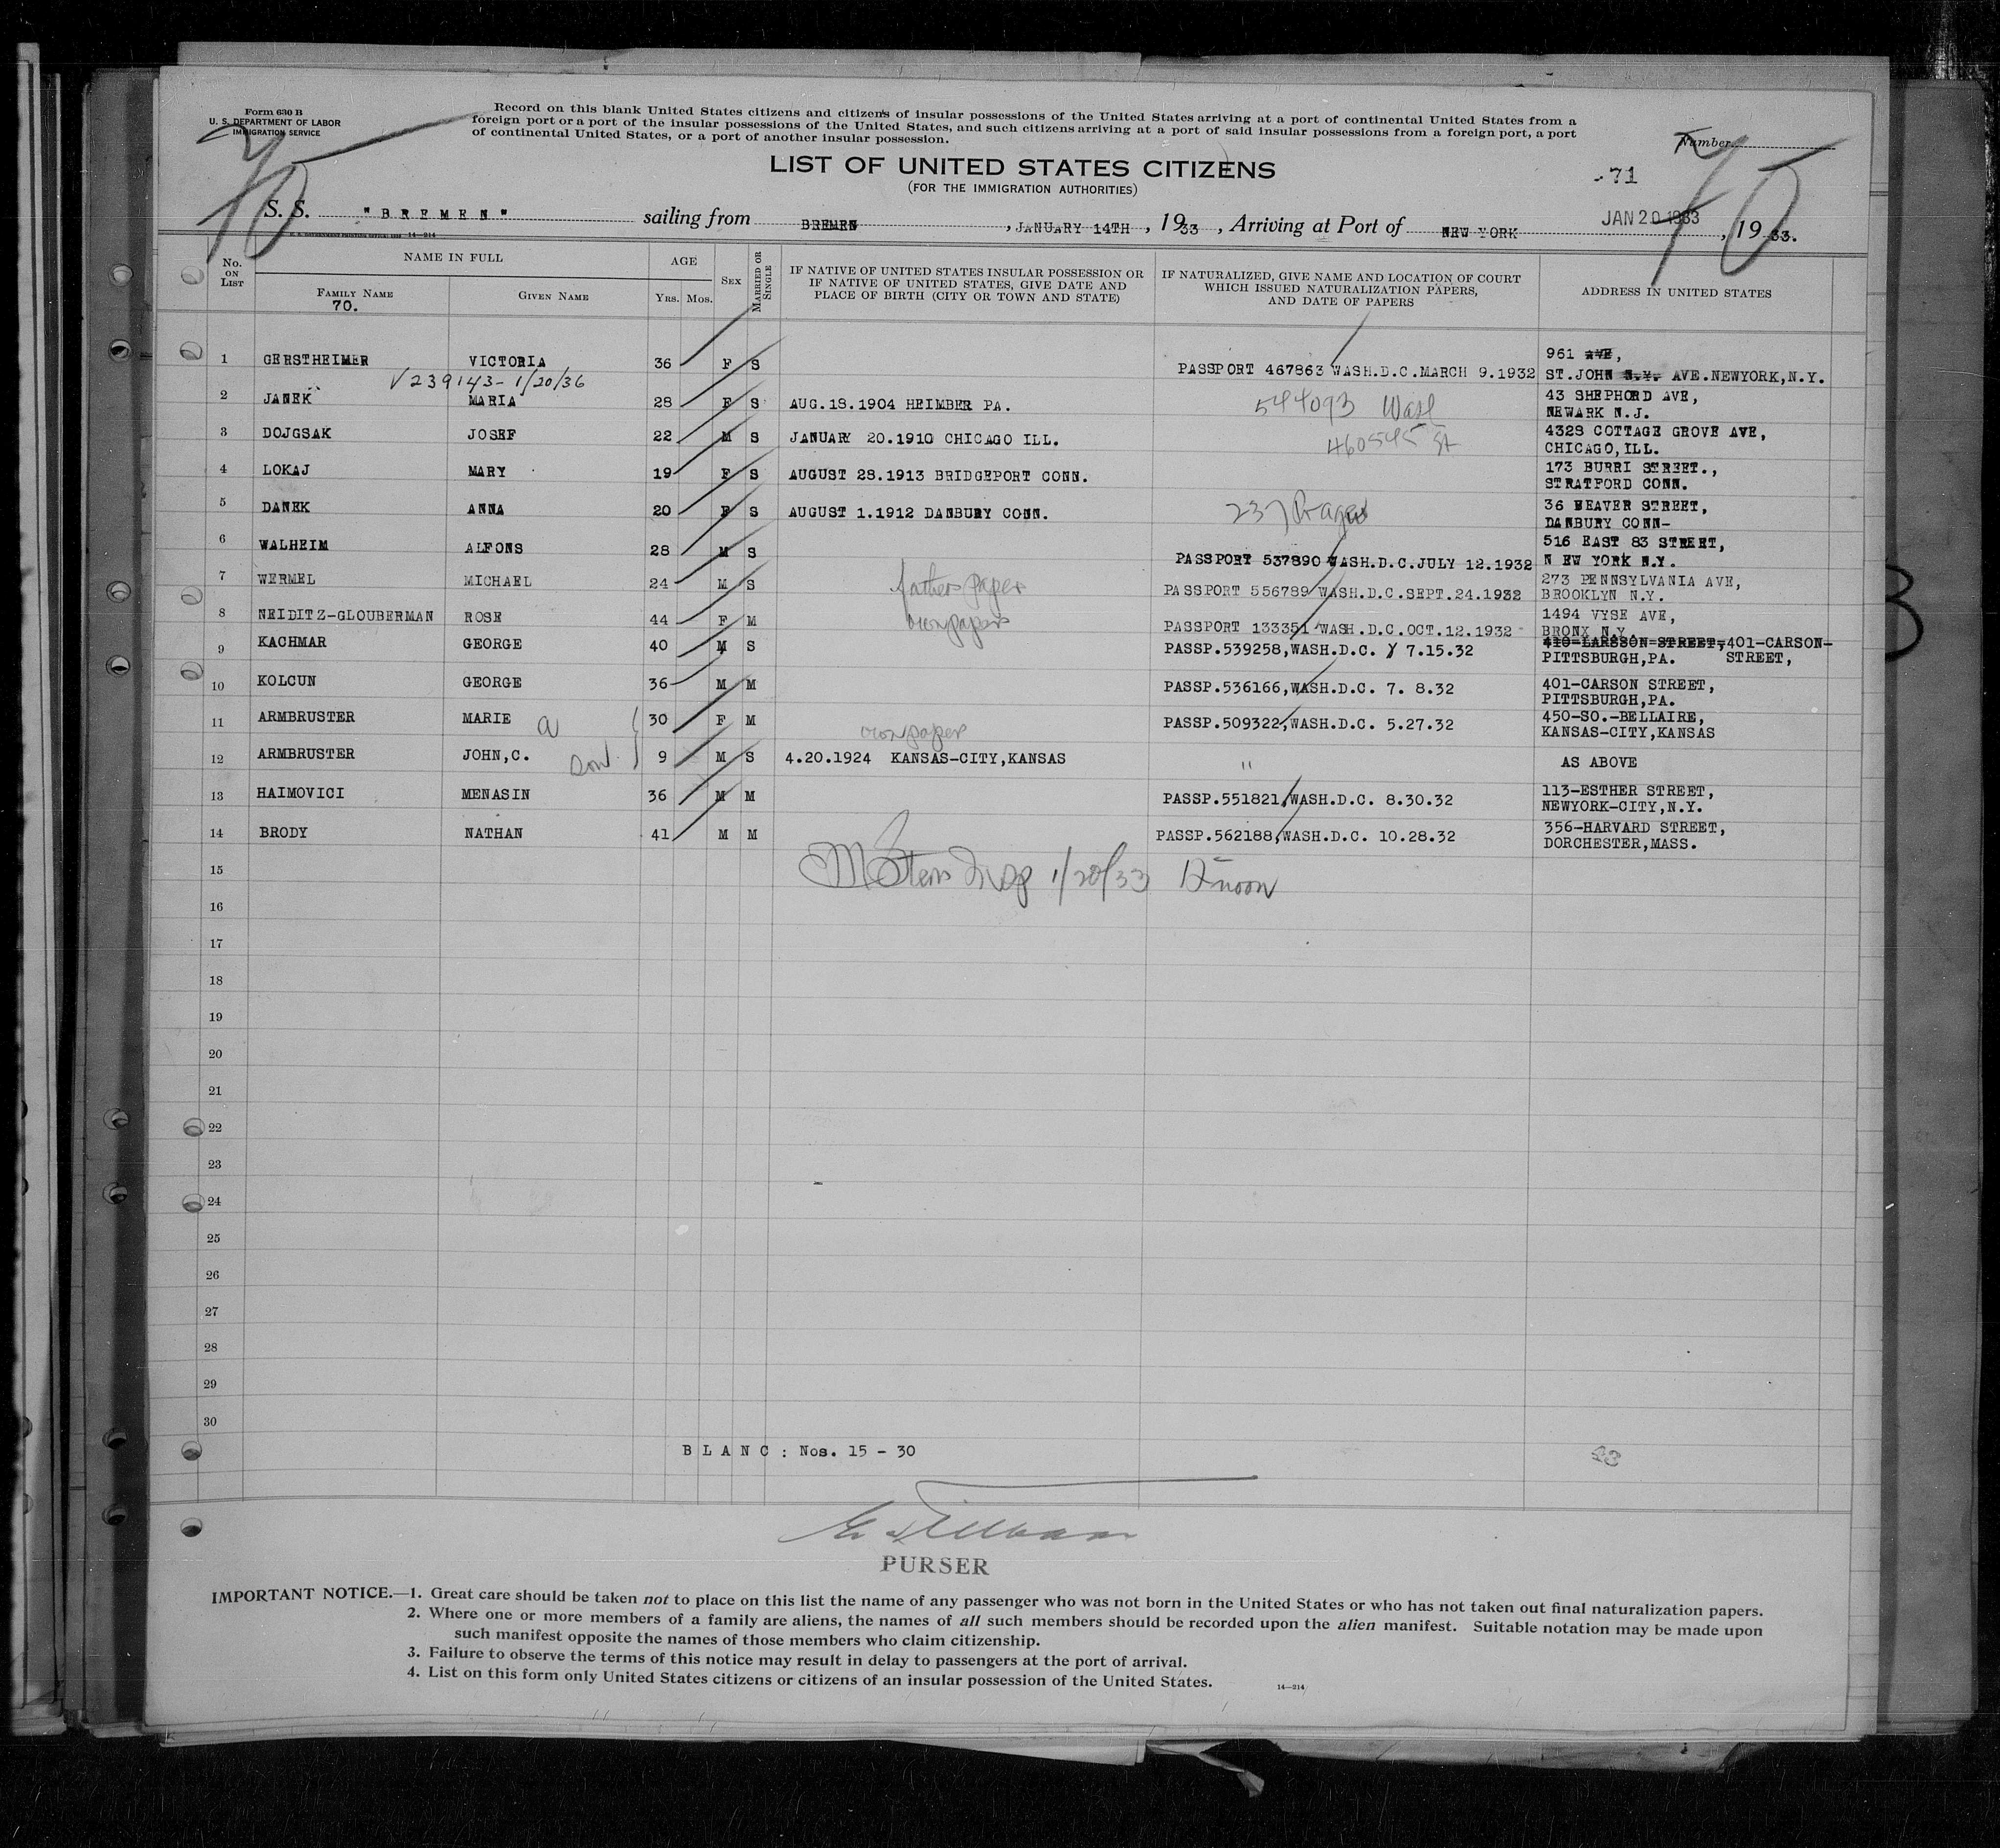 Form 630 B
U. S. DEPARTMENT OF LABOR
IMMIGRATION SERVICE
Record on this blank United States citizens and citizens of insular possessions of the United States arriving at a port of continental United States from a
foreign port or a port of the insular possessions of the United States, and such citizens arriving at a port of said insular possessions from a foreign port, a port
of continental United States, or a port of another insular possession.
Number
70
70
LIST OF UNITED STATES CITIZENS
(FOR THE IMMIGRATION AUTHORITIES)
-71
S. S. "BREMEN" sailing from BREMEN, JANUARY 14TH, 1933, Arriving at Port of NEW YORK JAN 20 1933, 1933.
U. S. GOVERNMENT PRINTING OFFICE: 14—214
No. ON LIST NAME IN FULL AGE SEX MARRIED OR SINGLE IF NATIVE OF UNITED STATES INSULAR POSSESSION OR IF NATIVE OF UNITED STATES, GIVE DATE AND PLACE OF BIRTH (CITY OR TOWN AND STATE) IF NATURALIZED, GIVE NAME AND LOCATION OF COURT WHICH ISSUED NATURALIZATION PAPERS, AND DATE OF PAPERS ADDRESS IN UNITED STATES
FAMILY NAME GIVEN NAME Yrs. Mos.
70.
1 GERSTHEIMER VICTORIA 36 F S PASSPORT 467863 WASH.D.C.MARCH 9.1932 961 AVE, ST.JOHN N.Y. AVE.NEWYORK,N.Y.
V239143-1/20/36
2 JANEK MARIA 28 F S AUG.18.1904 HEIMBER PA. 544093 Wash 43 SHEPHORD AVE, NEWARK N.J.
3 DOJGSAK JOSEF 22 M S JANUARY 20.1910 CHICAGO ILL. 460545 St 4328 COTTAGE GROVE AVE, CHICAGO,ILL.
4 LOKAJ MARY 19 F S AUGUST 28.1913 BRIDGEPORT CONN. 173 BURRI STREET., STRATFORD CONN.
5 DANEK ANNA 20 F S AUGUST 1.1912 DANBURY CONN. 237 Prague 36 BEAVER STREET, DANBURY CONN-
6 WALHEIM ALFONS 28 M S PASSPORT 537890 WASH.D.C.JULY 12.1932 516 EAST 83 STREET, N EW YORK N.Y.
7 WERMEL MICHAEL 24 M S fathers paper PASSPORT 556789 WASH.D.C.SEPT.24.1932 273 PENNSYLVANIA AVE, BROOKLYN N.Y.
8 NEIDITZ-GLOUBERMAN ROSE 44 F M own papers PASSPORT 133351 WASH.D.C.OCT.12.1932 1494 VYSE AVE, BRONX N.Y.
9 KACHMAR GEORGE 40 M S PASSP.539258,WASH.D.C. 7.15.32 410-LARSSON-STREET,401-CARSON- PITTSBURGH,PA. STREET,
10 KOLCUN GEORGE 36 M M PASSP.536166,WASH.D.C. 7. 8.32 401-CARSON STREET, PITTSBURGH,PA.
11 ARMBRUSTER MARIE a 30 F M own paper PASSP.509322,WASH.D.C. 5.27.32 450-SO.-BELLAIRE, KANSAS-CITY,KANSAS
12 ARMBRUSTER JOHN,C. son 9 M S 4.20.1924 KANSAS-CITY,KANSAS " AS ABOVE
13 HAIMOVICI MENASIN 36 M M PASSP.551821,WASH.D.C. 8.30.32 113-ESTHER STREET, NEWYORK-CITY,N.Y.
14 BRODY NATHAN 41 M M PASSP.562188,WASH.D.C. 10.28.32 356-HARVARD STREET, DORCHESTER,MASS.
15 Insp 1/20/33 12 noon
16
17
18
19
20
21
22
23
24
25
26
27
28
29
30
BLANC: Nos. 15 - 30
PURSER
IMPORTANT NOTICE.—1. Great care should be taken not to place on this list the name of any passenger who was not born in the United States or who has not taken out final naturalization papers.
2. Where one or more members of a family are aliens, the names of all such members should be recorded upon the alien manifest. Suitable notation may be made upon
such manifest opposite the names of those members who claim citizenship.
3. Failure to observe the terms of this notice may result in delay to passengers at the port of arrival.
4. List on this form only United States citizens or citizens of an insular possession of the United States.
14—214